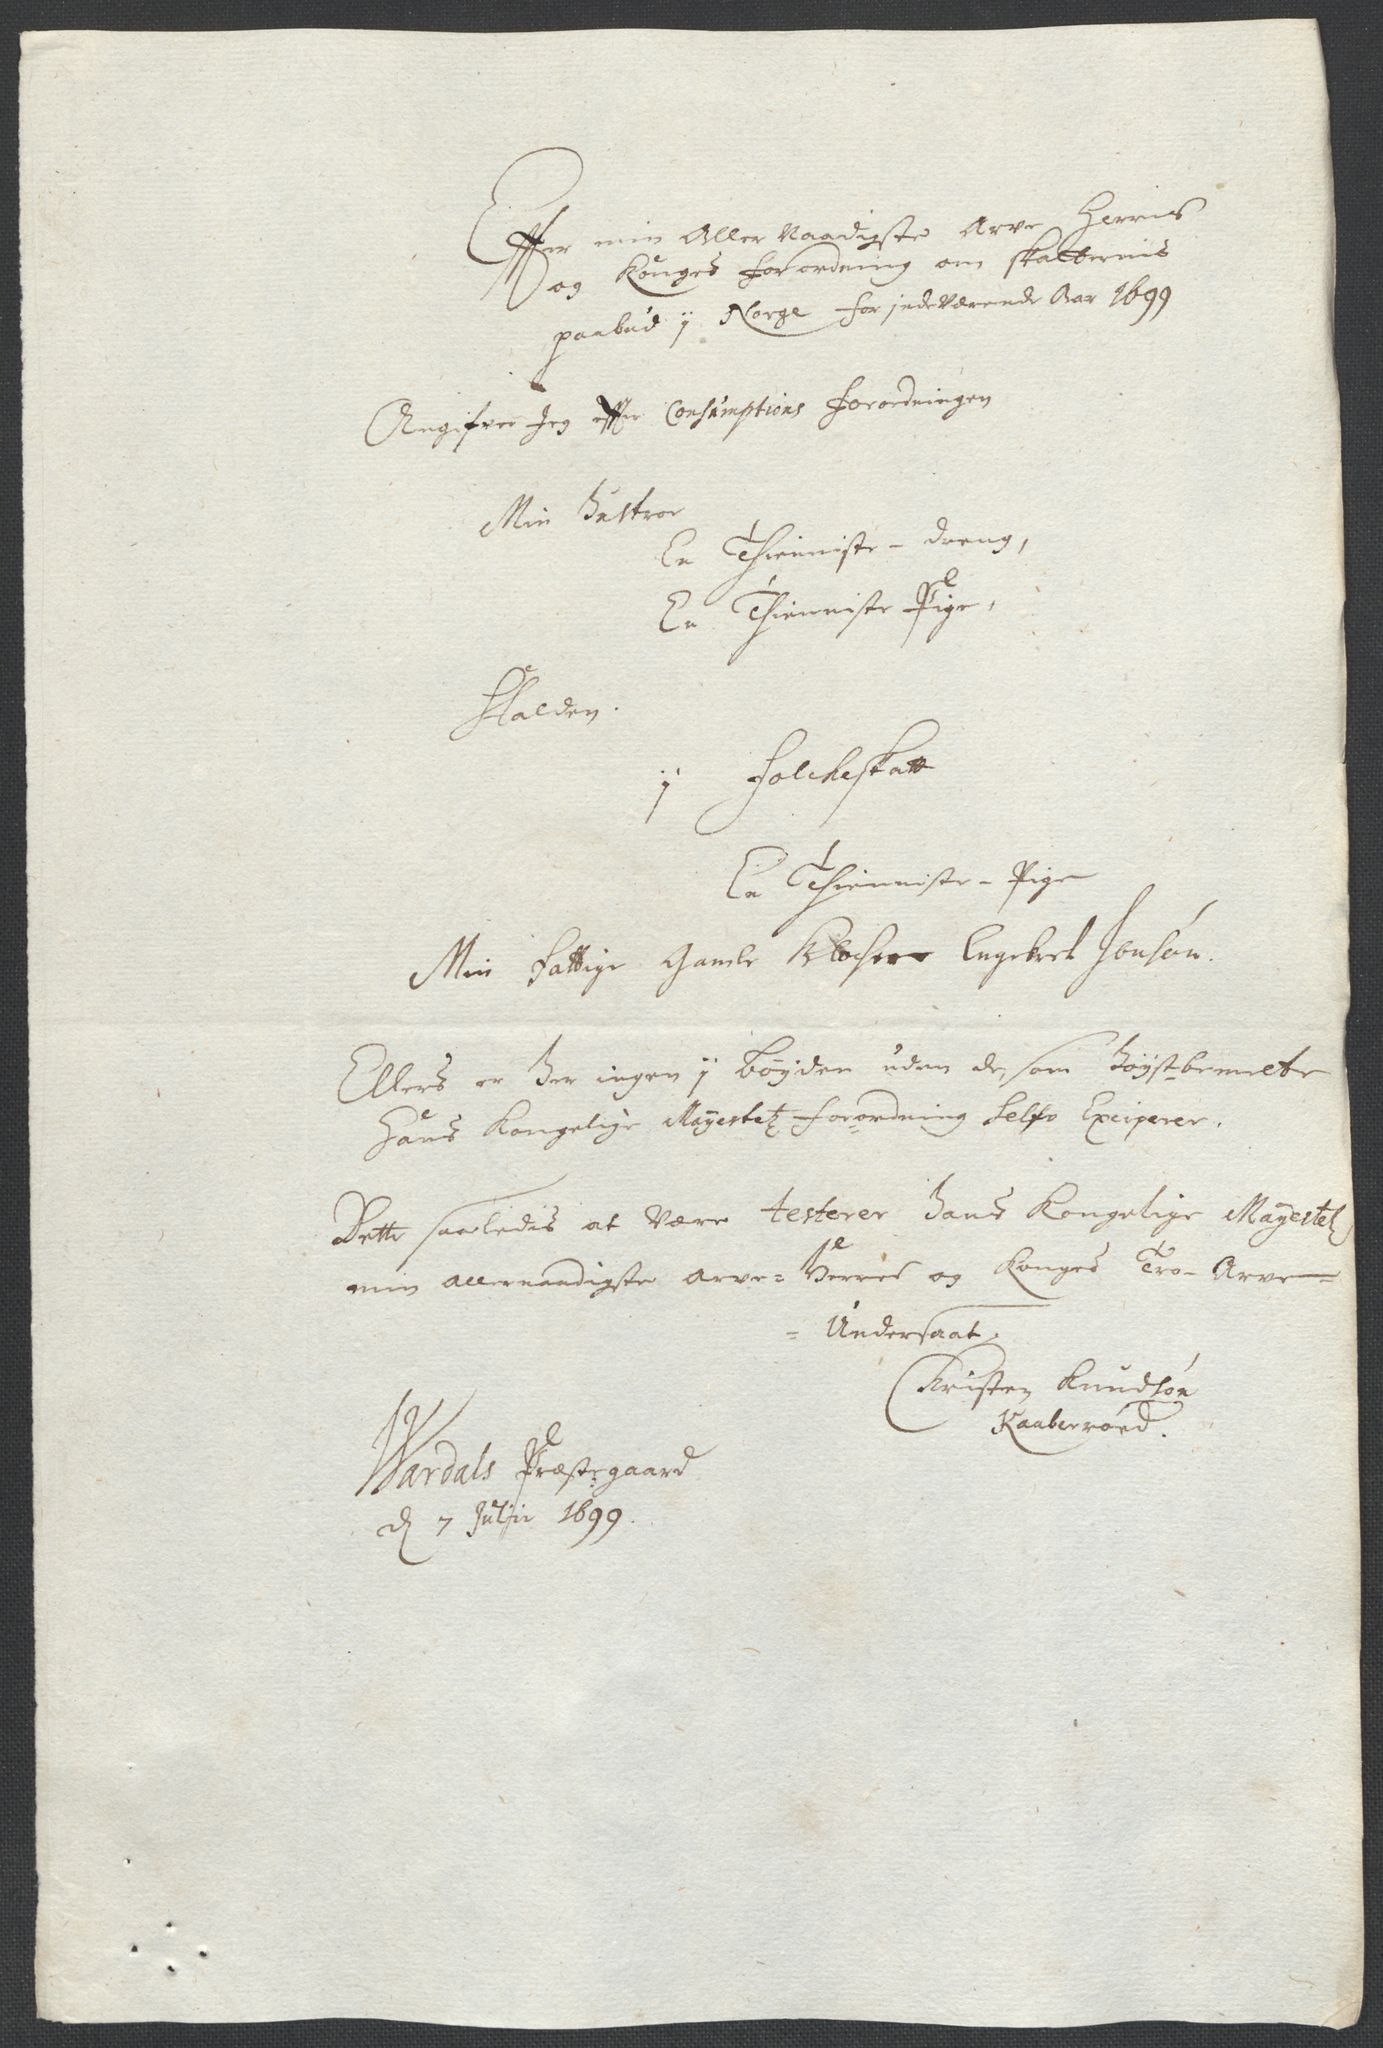 Effter min Aller Naadigste Arve Herris
og Konges forordning om skatternis
paabud ÿ Norge for indeværende Aar 1699
Angifver Jeg effter Consumptions forordningen
Min Hustroe
En Thienniste-dreng,
En Thienniste Pige,
Halden.
ÿ folcheskatt
En Thienniste-Pige
Min fattige Gamle Klocher Engebret Jonsøn.
Ellers er her ingen ÿ bøyden uden de, som høyst-bemelte
Hans Kongelige Mayestetz forordning selfv Exciperer.
Dette saaledis at være testerer Hans Kongelige Mayestetz
min allernaadigste arve= Herres og Konges Tro-Arve=
= Undersaat,
Christen Knudsøn
Kaaberroed.
Wardals Præstegaard
d 7 Julii 1699.